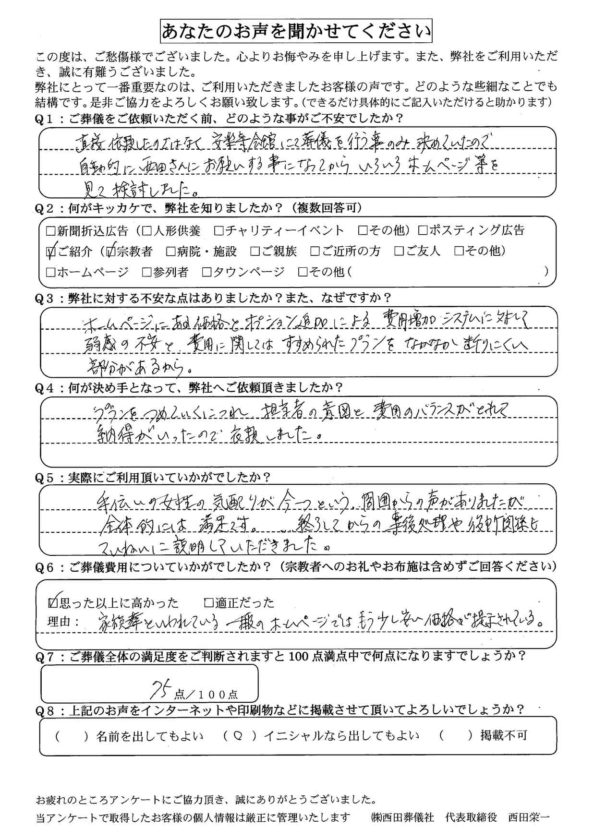 あなたのお声を聞かせてください
この度は、ご愁傷様でございました。心よりお悔やみを申し上げます。また、弊社をご利用いただ
き、誠に有難うございました。
弊社にとって一番重要なのは、ご利用いただきましたお客様の声です。どのような些細なことでも
結構です。是非ご協力をよろしくお願い致します。（できるだけ具体的にご記入いただけると助かります）
Q1：ご葬儀をご依頼いただく前、どのような事がご不安でしたか？
直接依頼したのではなく 安楽寺会館にて葬儀を行う事のみ 決めていたので
自動的に、西田さんにお願いする事になってから いろいろホームページ等を
見て検討しました。
Q2：何がキッカケで、弊社を知りましたか？（複数回答可）
□新聞折込広告（□人形供養 □チャリティーイベント □その他）□ポスティング広告
☑ご紹介（☑宗教者 □病院・施設 □ご親族 □ご近所の方 □ご友人 □その他）
□ホームページ □参列者 □タウンページ □その他（ ）
Q3：弊社に対する不安な点はありましたか？また、なぜですか？
ホームページにある価格とオプション追加による 費用増加 システムに対して
の不安と、費用に関しては すすめられたプランを なかなか断りにくい
部分があるから。
Q4：何が決め手となって、弊社へご依頼頂きましたか？
プランをつめていくにつれ、担当者の意図と 費用のバランスがとれて
納得がいったので 依頼しました。
Q5：実際にご利用頂いていかがでしたか？
手伝いの女性の気配りが 今一つという 周囲からの声がありましたが
全体的には 満足です。 終了してからの 事後処理や 役所関係も
ていねいに 説明していただきました。
Q6：ご葬儀費用についていかがでしたか？（宗教者へのお礼やお布施は含めずご回答ください）
☑思った以上に高かった □適正だった
理由： 家族葬といわれている 一般のホームページでは もう少し安い価格が提示されている。
Q7：ご葬儀全体の満足度をご判断されますと100点満点中で何点になりますでしょうか？
75点／100点
Q8：上記のお声をインターネットや印刷物などに掲載させて頂いてよろしいでしょうか？
（ ）名前を出してもよい （○）イニシャルなら出してもよい （ ）掲載不可
お疲れのところアンケートにご協力頂き、誠にありがとうございます。
当アンケートで取得したお客様の個人情報は厳正に管理いたします ㈱西田葬儀社 代表取締役 西田栄一